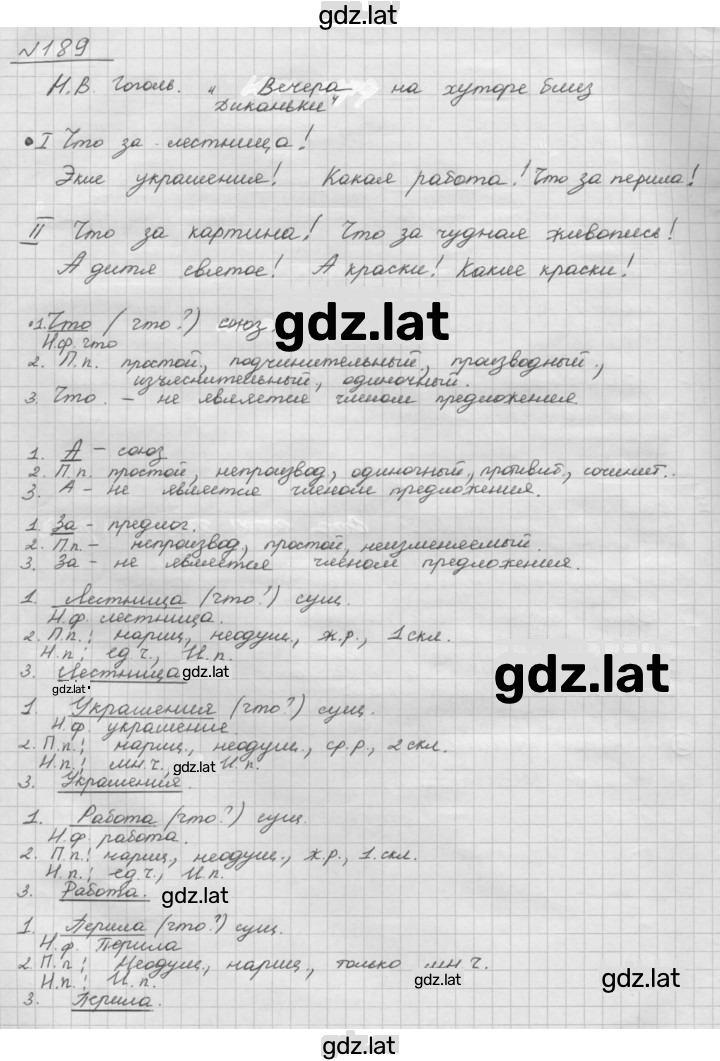 gdz.lat
№189
Н.В. Гоголь. „Вечера на хуторе близ
Диканьки"
• I Что за лестница!
Экие украшения! Какая работа! Что за перила!
II Что за картина! Что за чудная живопись!
А дитя святое! А краски! Какие краски!
•1. Что (что?) союз,
gdz.lat
Н.ф. что
2. П.п. простой, подчинительный, производный,
изъяснительный, одиночный.
3. Что. – не является членом предложения.
1. А – союз
2. П.п. простой, непроизвод, одиночный, противит, сочинит..
3. А – не является членом предложения.
1. За - предлог.
2. П.п. – непроизвод, простой, неизменяемый.
3. За – не является членом предложения.
1. Лестница (что?) сущ.
Н.ф. лестница.
2. П.п.: нариц., неодуш., ж.р., 1 скл.
Н.п.: ед.ч., И.п.
3. Лестница gdz.lat
gdz.lat
gdz.lat
1. Украшения (что?) сущ.
Н.ф. украшение.
2. П.п.: нариц., неодуш., ср.р., 2 скл.
Н.п.: мн.ч., И.п.
gdz.lat
3. Украшения.
1. Работа (что?) сущ.
Н.ф. работа.
2. П.п.: нариц, неодуш., ж.р., 1.скл.
Н.п.: ед.ч., И.п.
3. Работа. gdz.lat
1. Перила (что?) сущ.
Н.ф. Перила
2. П.п.: Неодуш., нариц., только мн.ч.
Н.п.: И.п.
gdz.lat
gdz.lat
3. Перила.
gdz.lat